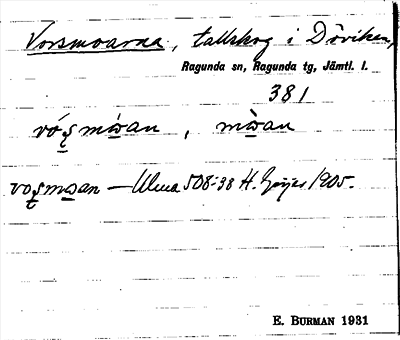 Vorsmoarna, tallskog i Döviken,
Ragunda sn, Ragunda tg, Jämtl. l.
381
vó̜ṣmẁan, mẁan
voṣmwan — Ulma 508:38 H. Geijer 1905.
E. BURMAN 1931